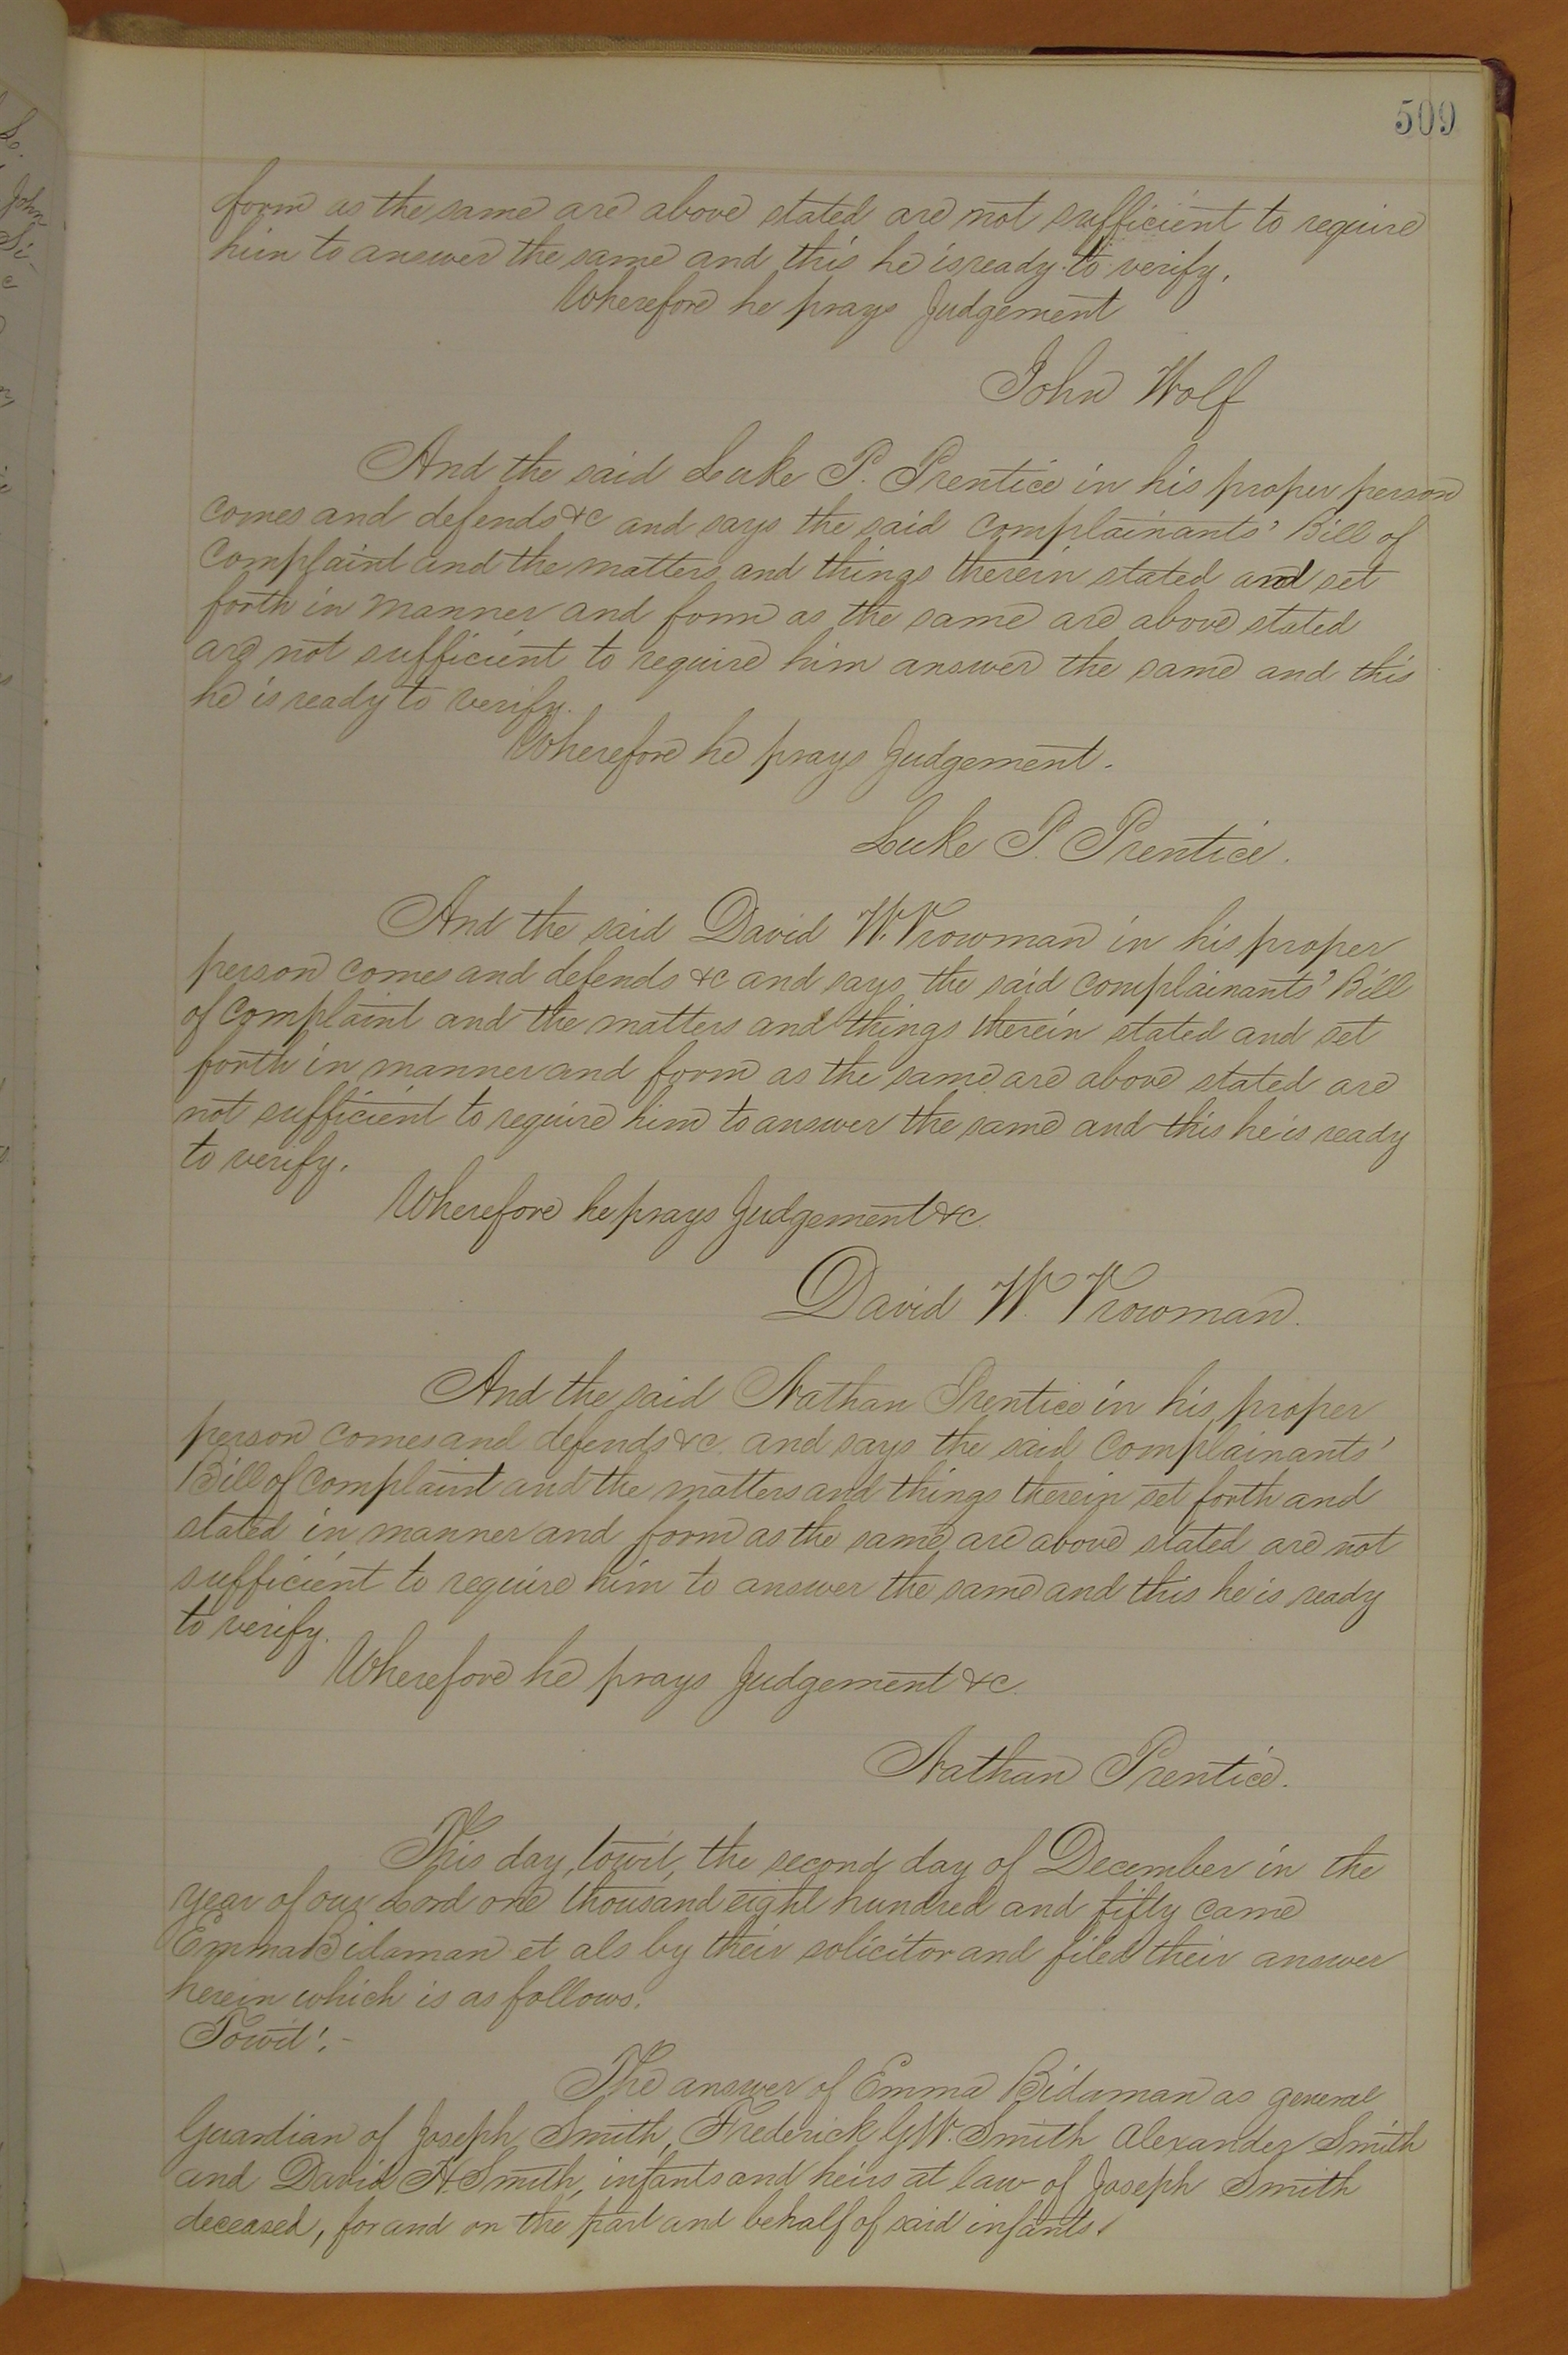 509
form as the same are above stated are not sufficient to require
him to answer the same and this he is ready to verify.
Wherefore he prays Judgement
John Wolf
And the said Luke P. Prentice in his proper person
comes and defends &c and says the said complainants' Bill of
Complaint and the matters and things therein stated and set
forth in manner and form as the same are above stated
are not sufficient to require him answer the same and this
he is ready to verify.
Wherefore he prays Judgement.
Luke P. Prentice.
And the said David W. Vrowman in his proper
person comes and defends &c and says the said complainants' Bill
of Complaint and the matters and things therein stated and set
forth in manner and form as the same are above stated are
not sufficient to require him to answer the same and this he is ready
to verify.
Wherefore he prays Judgement &c.
David W. Vrowman.
And the said Nathan Prentice in his proper
person comes and defends &c. and says the said Complainants'
Bill of Complaint and the matters and things therein set forth and
stated in manner and form as the same are above stated are not
sufficient to require him to answer the same and this he is ready
to verify.
Wherefore he prays Judgement &c.
Nathan Prentice.
This day, towit, the second day of December in the
year of our Lord one thousand eight hundred and fifty came
Emma Bidaman et als by their solicitor and filed their answer
herein which is as follows.
Towit:-
The answer of Emma Bidaman as general
Guardian of Joseph Smith, Frederick G. W. Smith Alexander Smith
and David H Smith, infants and heirs at law of Joseph Smith
deceased, for and on the part and behalf of said infants.